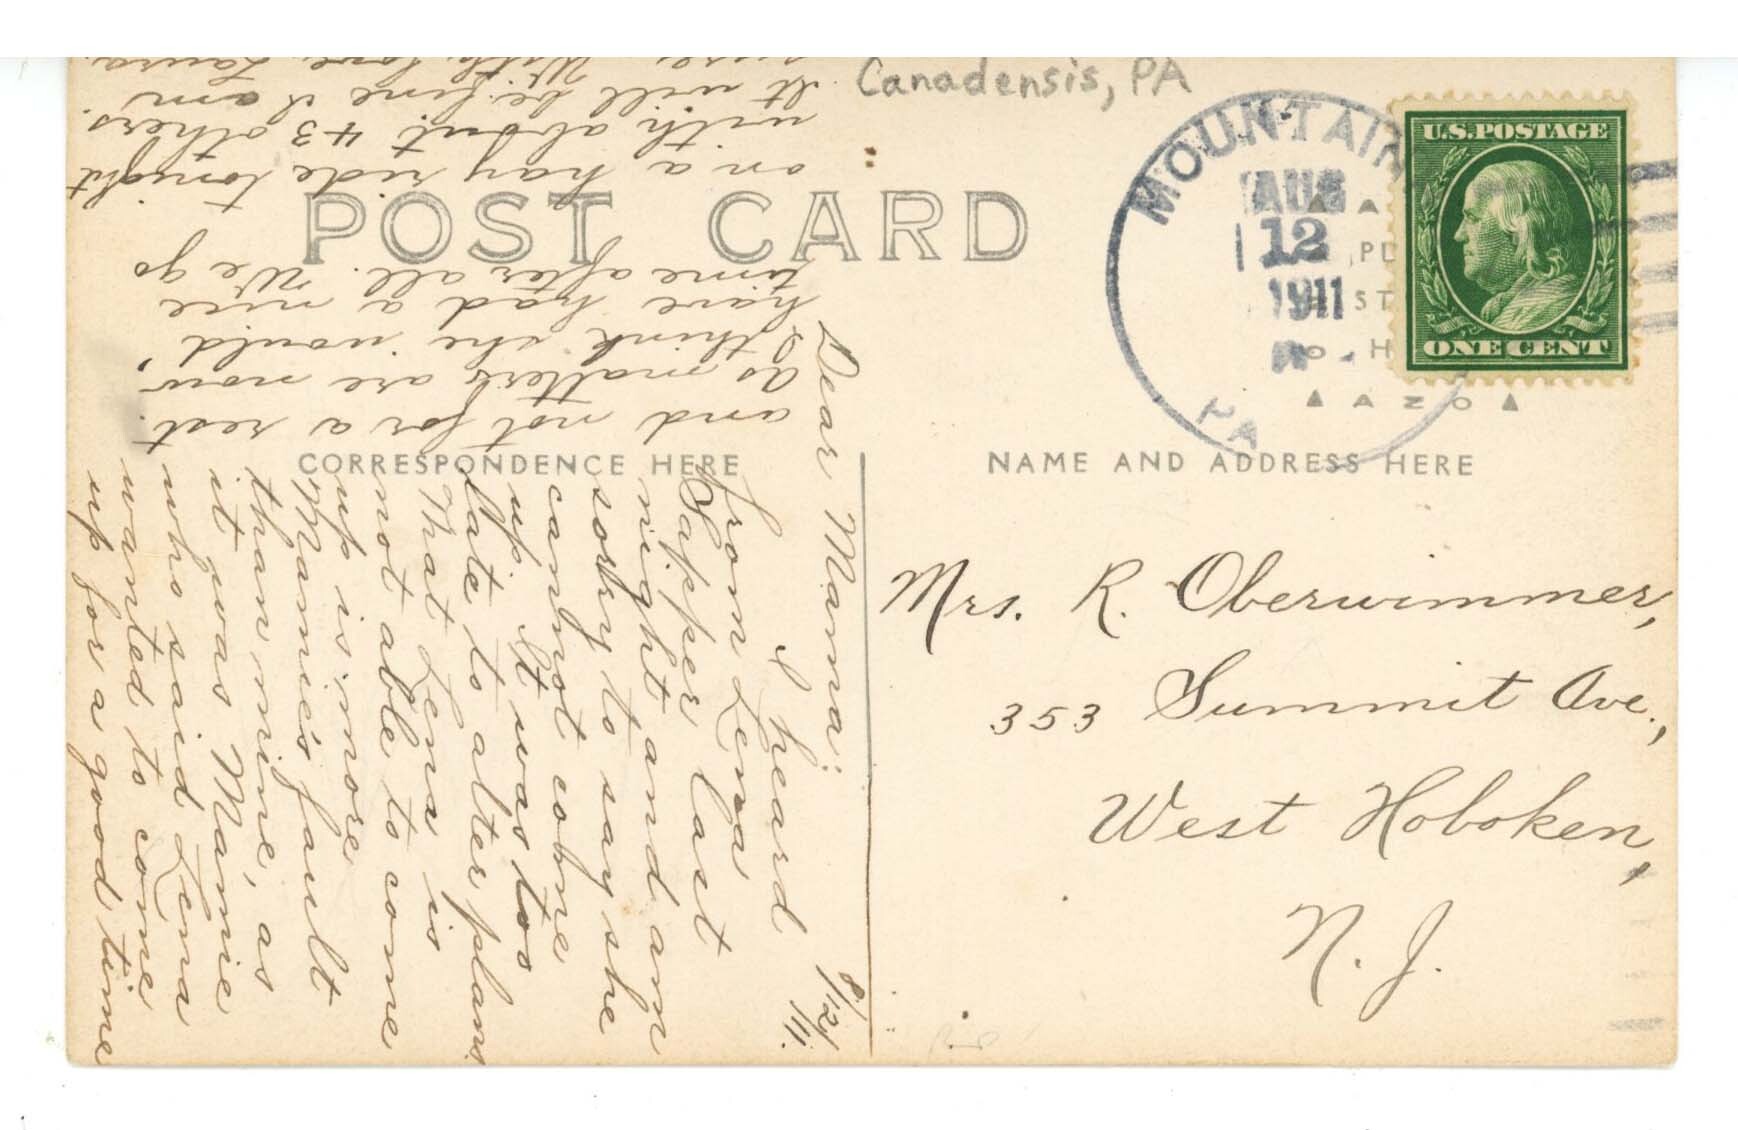 Canadensis, PA
MOUNTAIN
AUG
12
1911
PA
U.S. POSTAGE
ONE CENT
PL
ST
H
AZO
POST CARD
CORRESPONDENCE HERE
NAME AND ADDRESS HERE
Mrs. R. Oberwimmer,
353 Summit Ave.,
West Hoboken,
N. J.
8/12/11.
Dear Mama:
I heard
from Lena
Sapper last
night and am
sorry to say she
cannot come
up. It was too
late to alter plans
That Lena is
not able to come
up is more
Mamie's fault
than mine, as
it was Mamie
who said Lena
wanted to come
up for a good time
and not for a rest.
As matters are now
I think she would
have had a nice
time after all. We go
on a hay ride tonight
with about 43 others.
It will be fine I am
sure. With love, Laura.